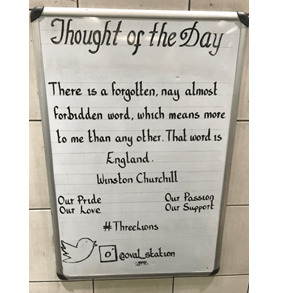 Thought of the Day
There is a forgotten, nay almost
forbidden word, which means more
to me than any other. That word is
England.
Winston Churchill
Our Pride Our Passion
Our Love Our Support
#ThreeLions
@oval_station